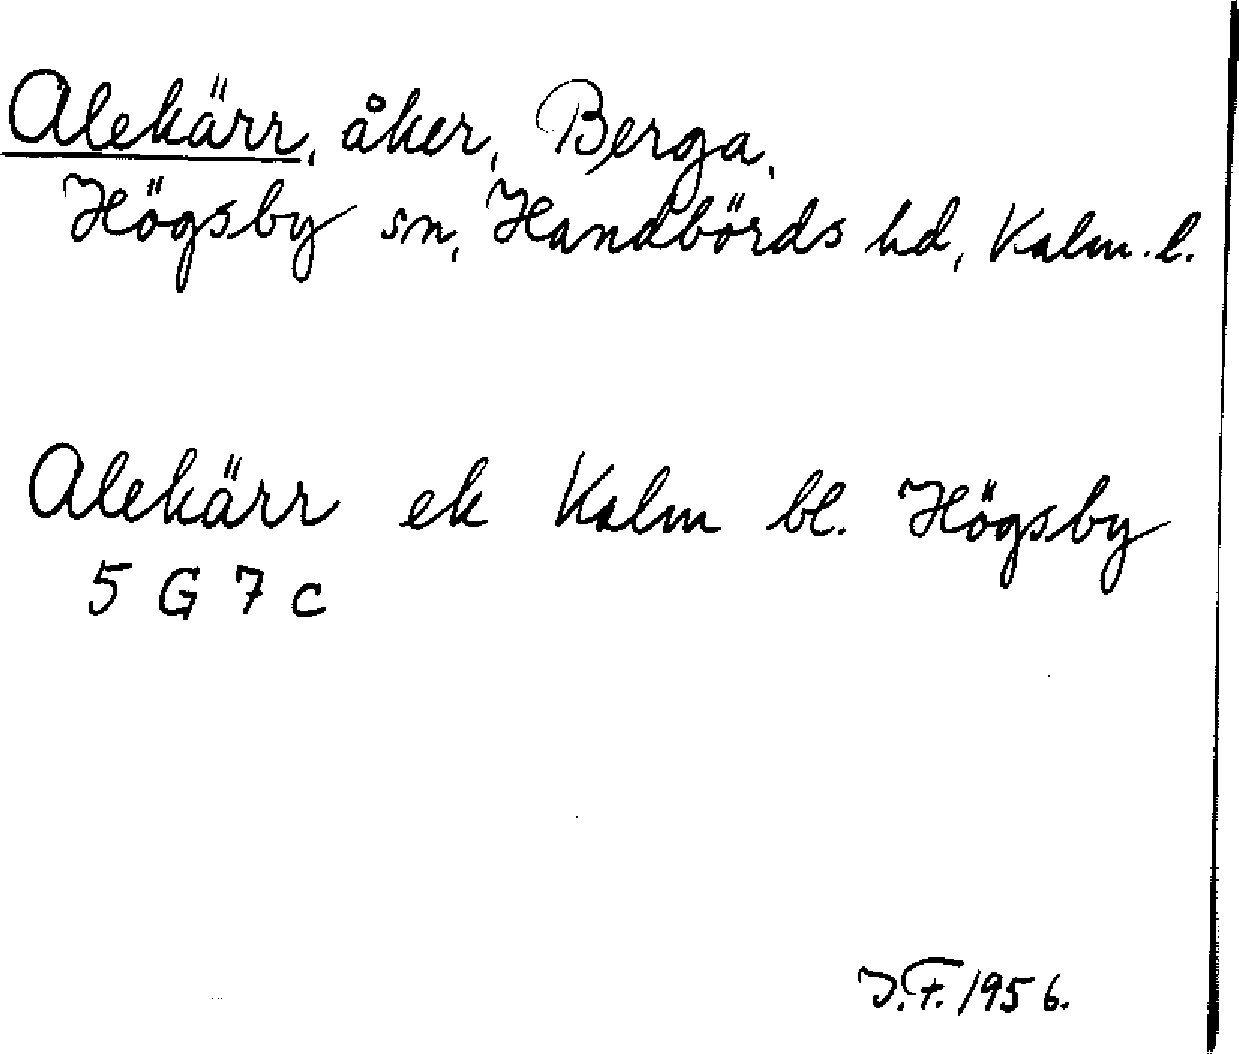 Alekärr, åker, Berga,
Högsby sn, Handbörds hd, Kalm. l.
Alekärr ek Kalm bl. Högsby
5 G 7 c
J.F. 1956.